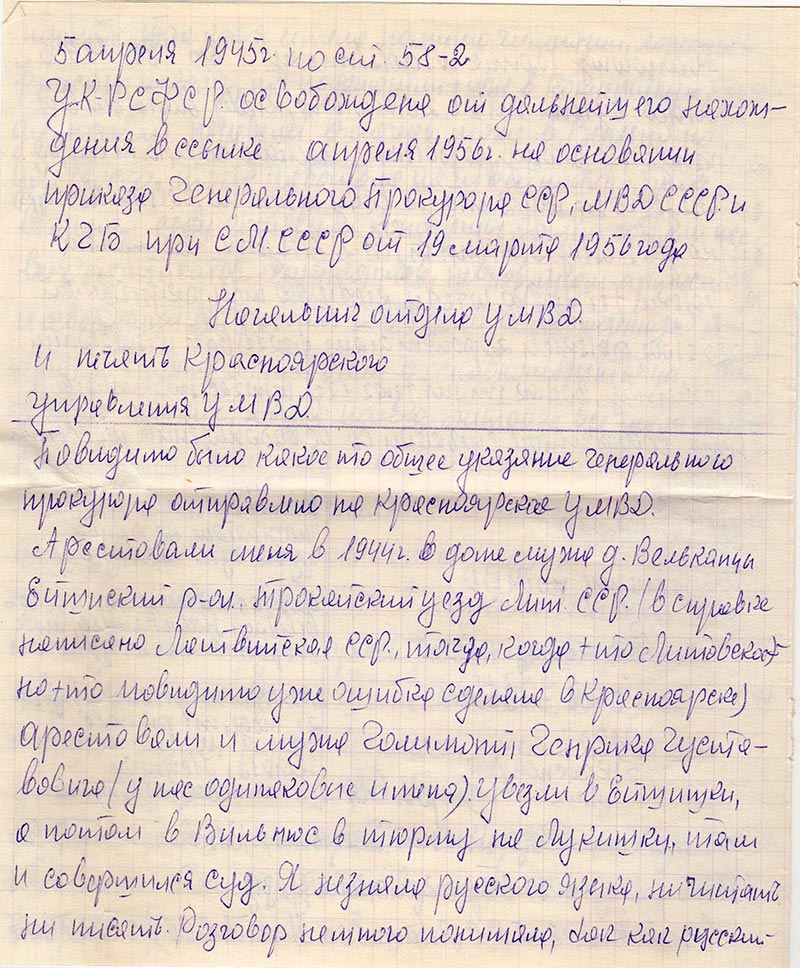 5 апреля 1945г. по ст. 58-2
У.К. РСФСР. освобождена от дальнейщего нахож-
дения в ссылке апреля 1956г. на основании
приказа Генерального Прокурора ССР, МВД СССР. и
КГБ при С.М. СССР от 19 марта 1956 года
Начальник отдела УМВД
и печать Красноярского
управления УМВД
Повидимо было какое то общее указание генерального
прокурора отправлено на Красноярское УМВД.
Арестовали меня в 1944г. в доме мужа д. Вельканцы
Ейшиский р-он, Тракайский уезд Лит. ССР. (в справке
написано Латвийская ССР., тагда, когда это Литовская
но это повидимо уже ошибка сделана в Красноярске)
арестовали и мужа Голимонт, Генрика Густа-
вовича (у нас одинаковые имена). Увезли в Ейшишки,
а потом в Вильнюс в тюрму на Лукишки, там
и совершился суд. Я незняла русского языка, ни читать
ни писать. Розговор немного понимала, так как русский-